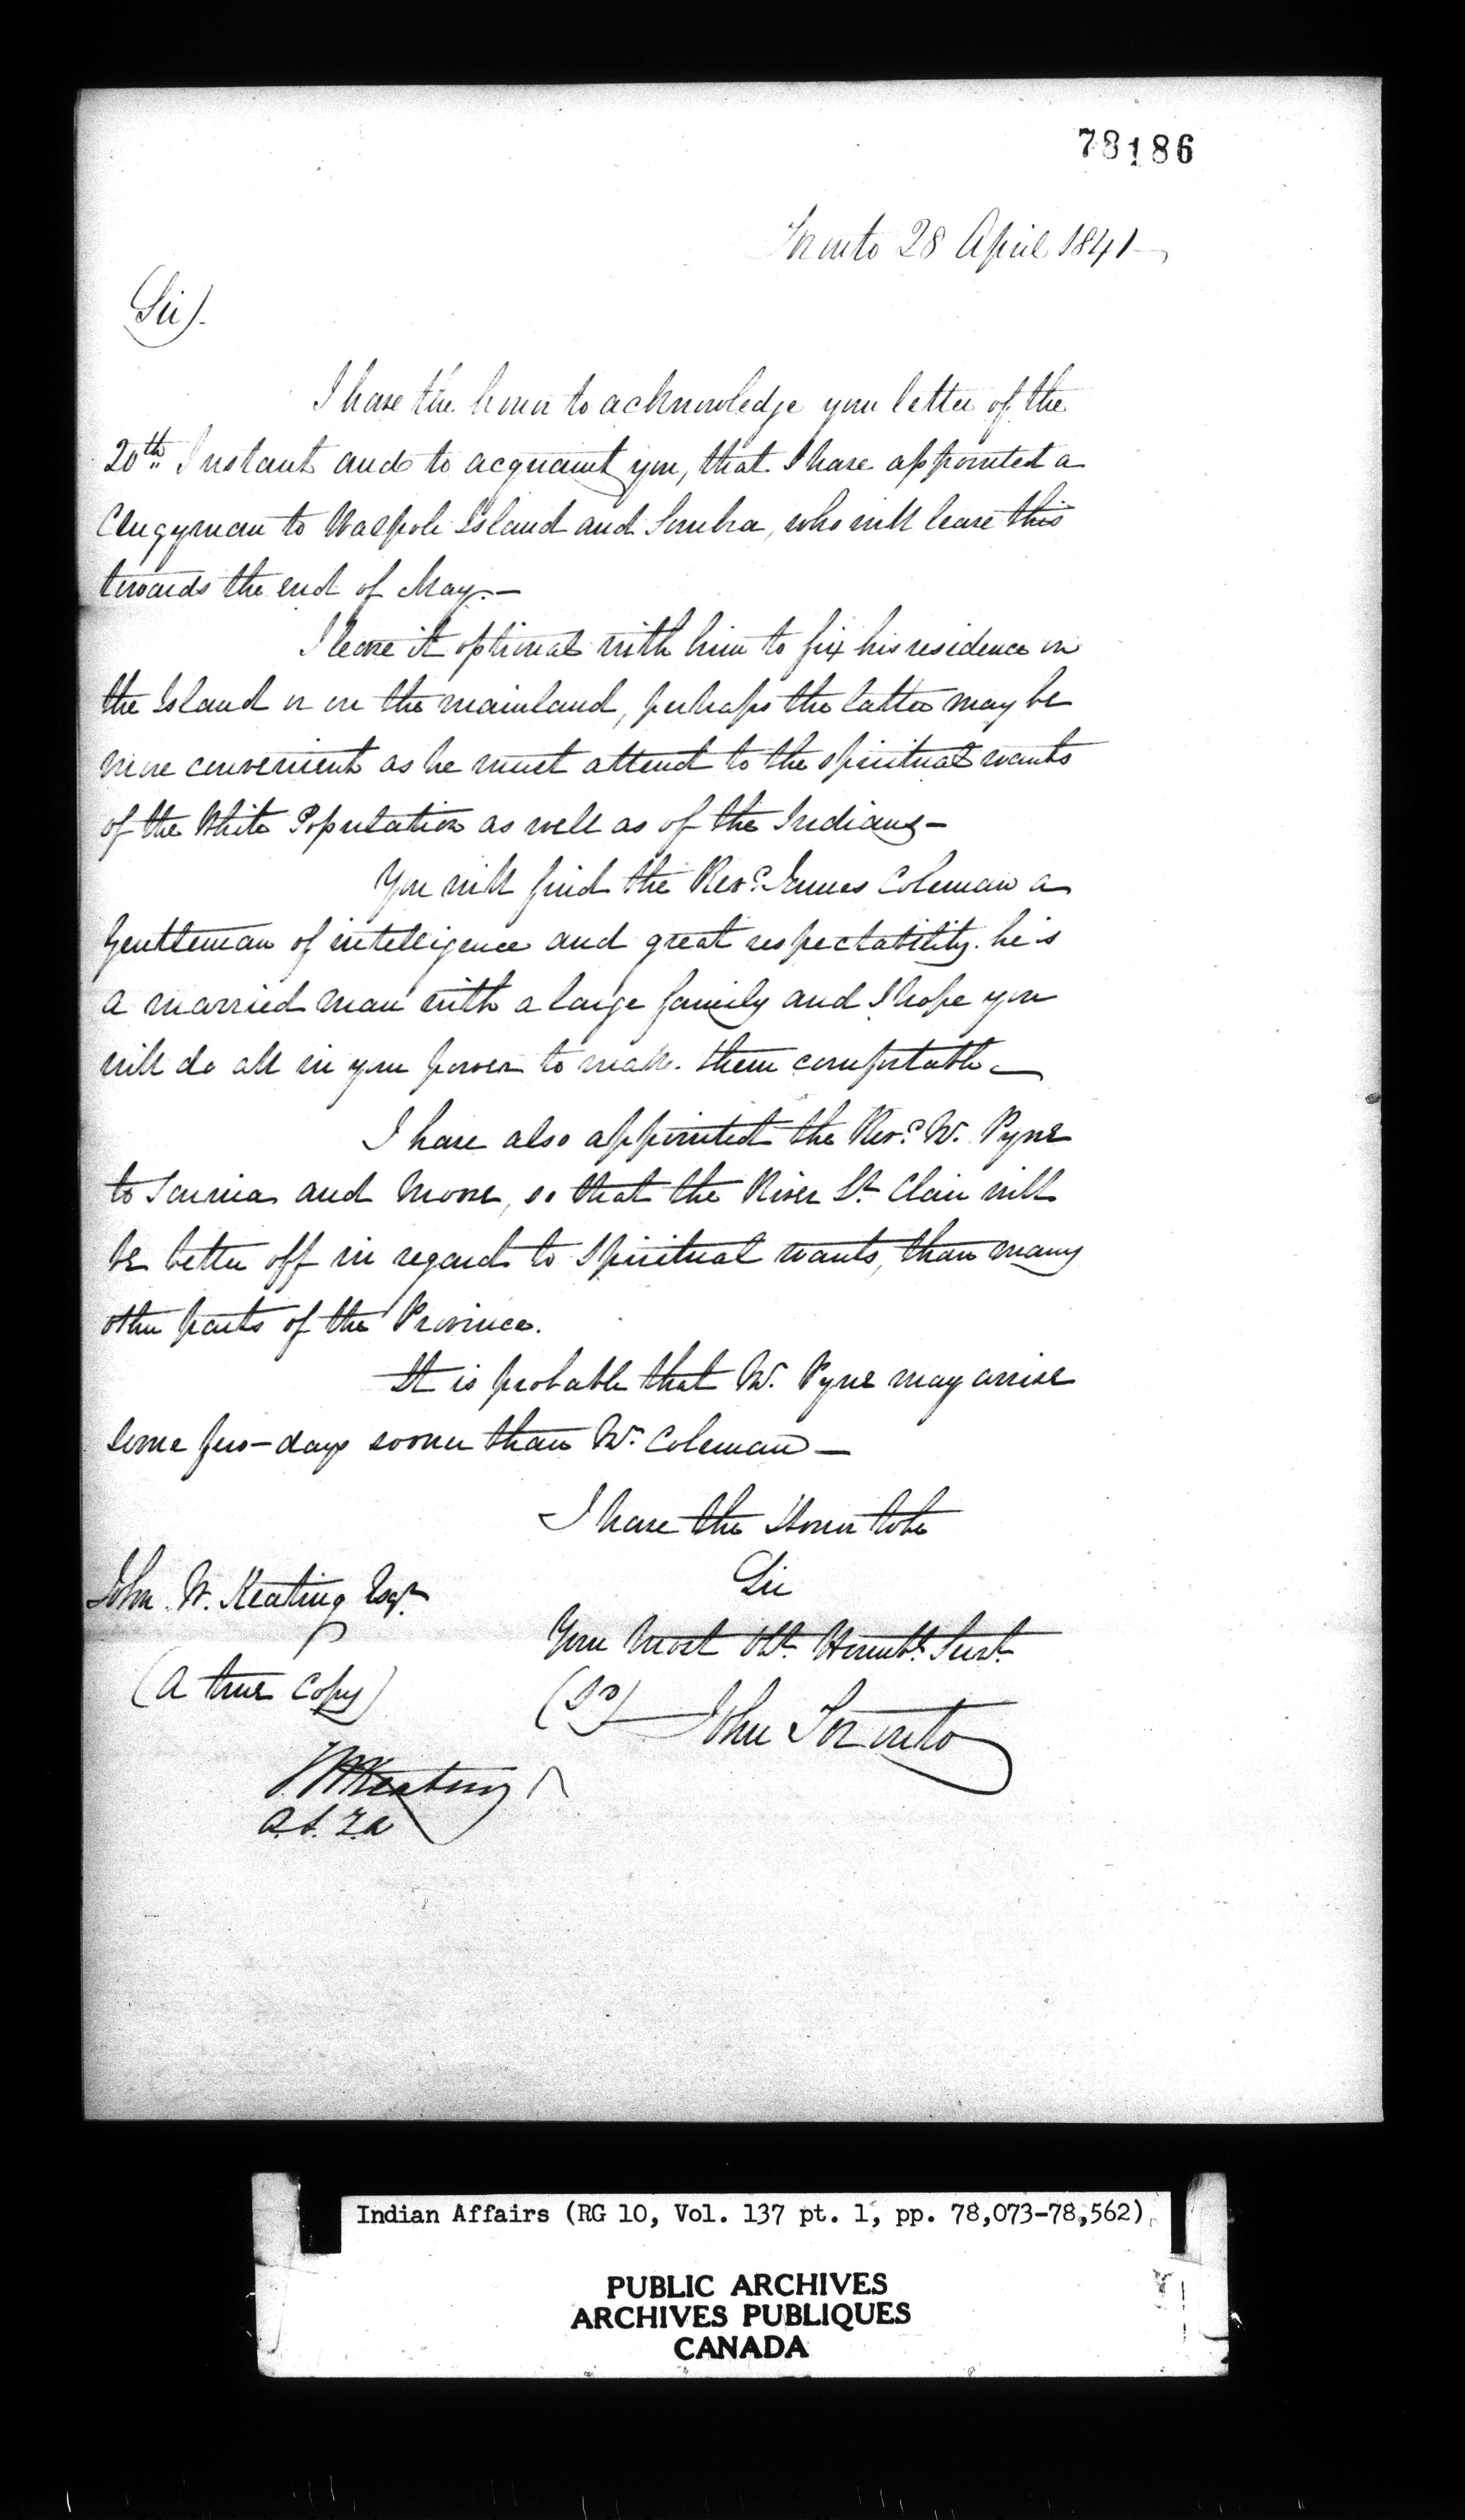 78186
Toronto 28 April 1841
Sir,
I have the honor to acknowledge your letter of the
20th Instant and to acquaint you, that I have appointed a
Clergyman to Walpole Island and Sombra, who will leave this
towards the end of May.—
I leave it optional with him to fix his residence on
the Island or on the mainland, perhaps the latter may be
more convenient as he must attend to the spiritual wants
of the White Population as well as of the Indians—
You will find the Revd. James Coleman a
gentleman of intelligence and great respectability. he is
a married man with a large family and I hope you
will do all in your power to make them comfortable—
I have also appointed the Revd. W. Pyne
to Sarnia and Moore, so that the River St Clair will
be better off in regard to Spiritual wants, than many
other parts of the Province.
It is probable that Mr. Pyne may arrive
some few-days sooner than Mr. Coleman—
I have the Honor to be
Sir
Your Most Obt. Humble. Servt.
(Sd) John Toronto
John W. Keating Esqr.
(A true Copy)
J W Keating
A.S.I.A
Indian Affairs (RG 10, Vol. 137 pt. 1, pp. 78,073-78,562)
PUBLIC ARCHIVES
ARCHIVES PUBLIQUES
CANADA